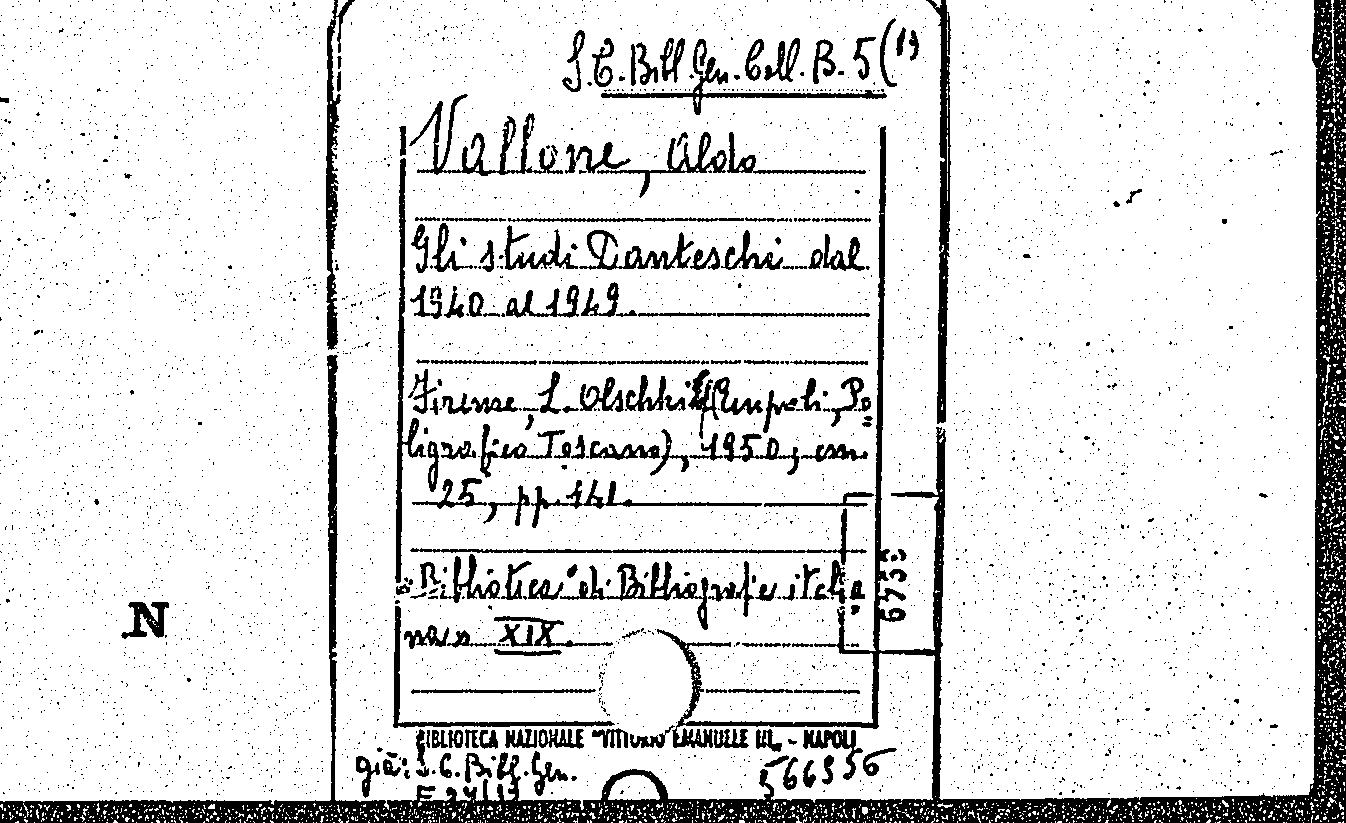 S.C. Bibl. Gen. Coll. B. 5(19
Vallone, Aldo
Gli studi Danteschi dal
1940 al 1949.
Firenze, L. Olschki (Empoli, Po=
ligrafico Toscano), 1950, cm.
25, pp. 141.
"Biblioteca di Bibliografia italia=
na" XIX.
6755
N
BIBLIOTECA NAZIONALE "VITTORIO EMANUELE III" - NAPOLI
già: S.C. Bibl. Gen.
566356